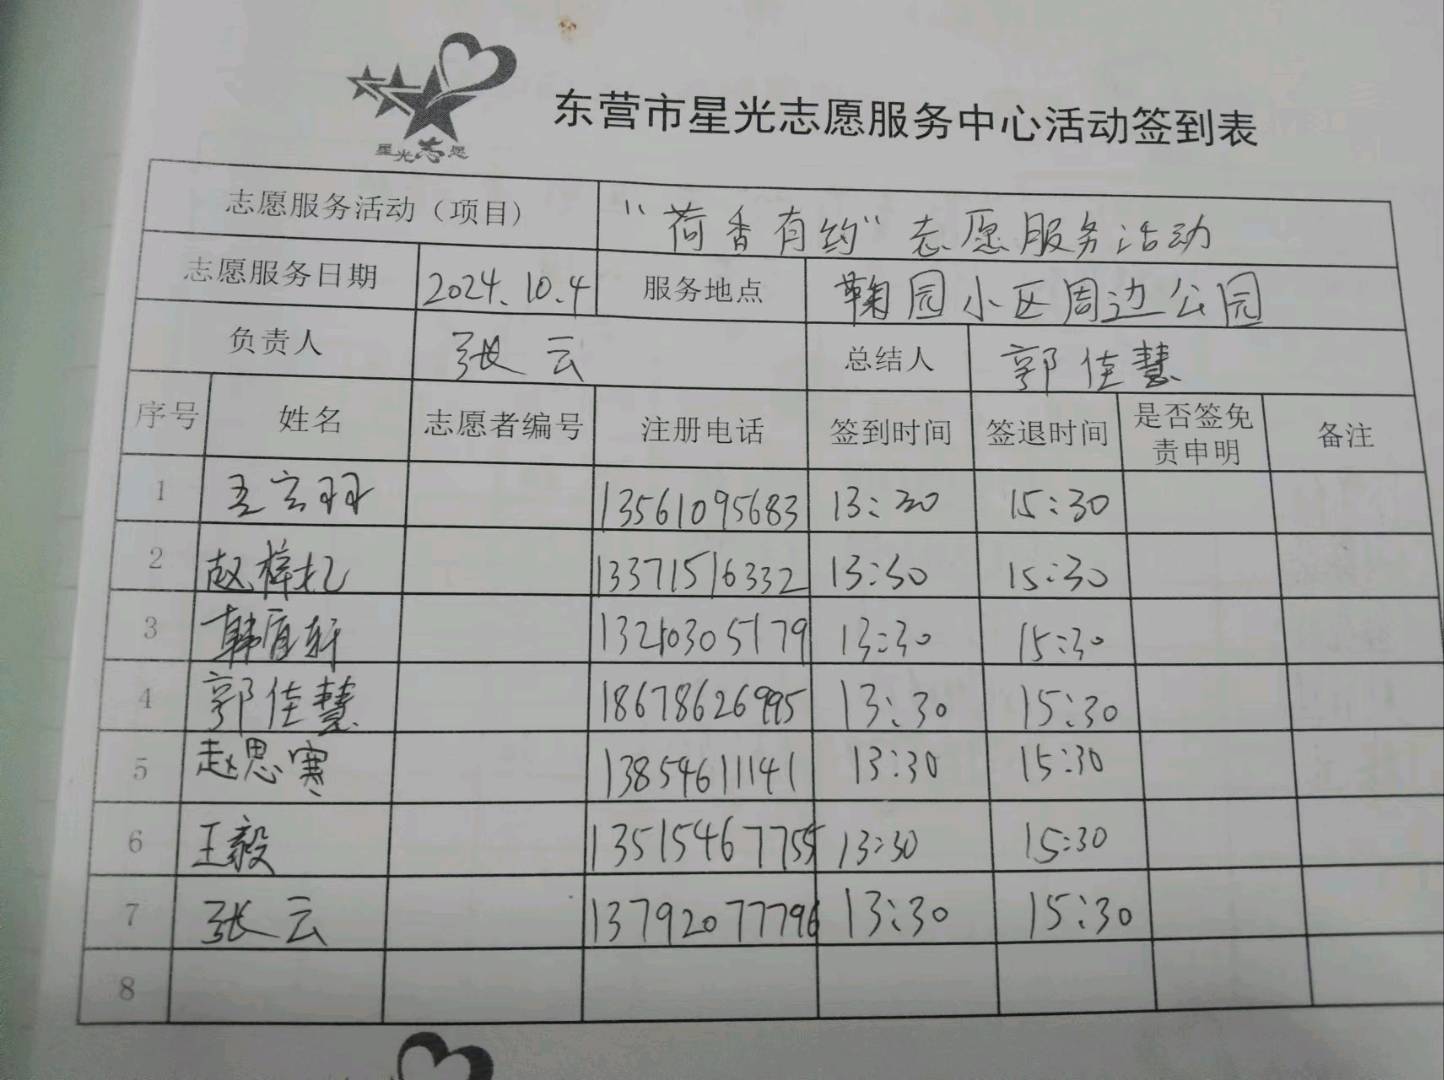 星光志愿
东营市星光志愿服务中心活动签到表
志愿服务活动（项目） “荷香有约”志愿服务活动
志愿服务日期 2024.10.4 服务地点 鞠园小区周边公园
负责人 张云 总结人 郭佳慧
序号 姓名 志愿者编号 注册电话 签到时间 签退时间 是否签免责申明 备注
1 13561095683 13:30 15:30
2 赵梓杉 13371516332 13:30 15:30
3 韩宜轩 13210305179 13:30 15:30
4 郭佳慧 18678626995 13:30 15:30
5 赵思寒 13854611141 13:30 15:30
6 王毅 13515467755 13:30 15:30
7 张云 13792077796 13:30 15:30
8